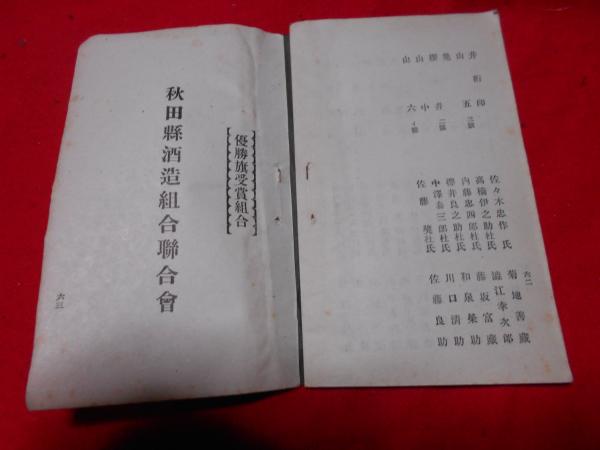 六二
井桁印 佐々木忠作氏 菊地善藏
山五 三號 高橋伊之助杜氏 澁江幸次郎
内藤忠四郎杜氏 藤坂富藏
櫻井 二號 櫻井良之助杜氏 和泉榮助
山中 中澤泰三郎杜氏 川口清助
山六 イ號 佐藤 杜氏 佐藤良助
優勝旗受賞組合
秋田縣酒造組合聯合會
六三